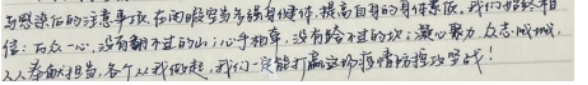 与感染后的注意事项,在闲暇室当多强身健体,提高自身的身体素质。我们始终相
信:万众一心,没有翻不过的山;心手相牵,没有跨不过的坎;凝心聚力,众志成城,
人人奉献担当,各个从我做起,我们一定能打赢这场疫情防控攻坚战!